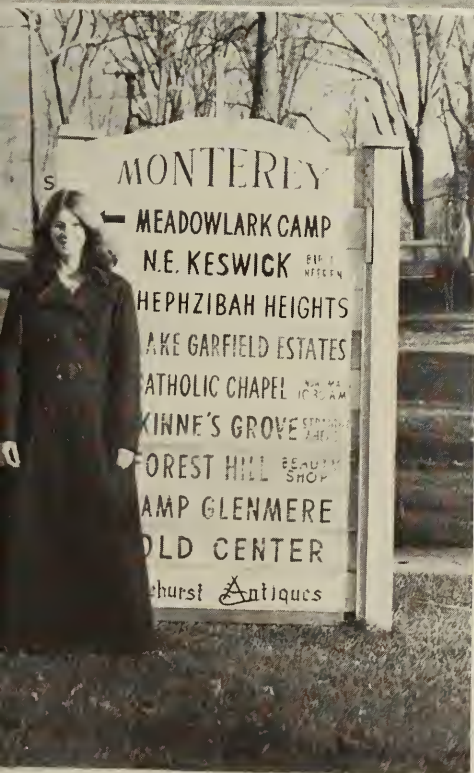 S
MONTEREY
MEADOWLARK CAMP
N.E. KESWICK
HEPHZIBAH HEIGHTS
AKE GARFIELD ESTATES
ATHOLIC CHAPEL
KINNE'S GROVE
OREST HILL BEAUTY SHOP
AMP GLENMERE
OLD CENTER
ehurst Antiques